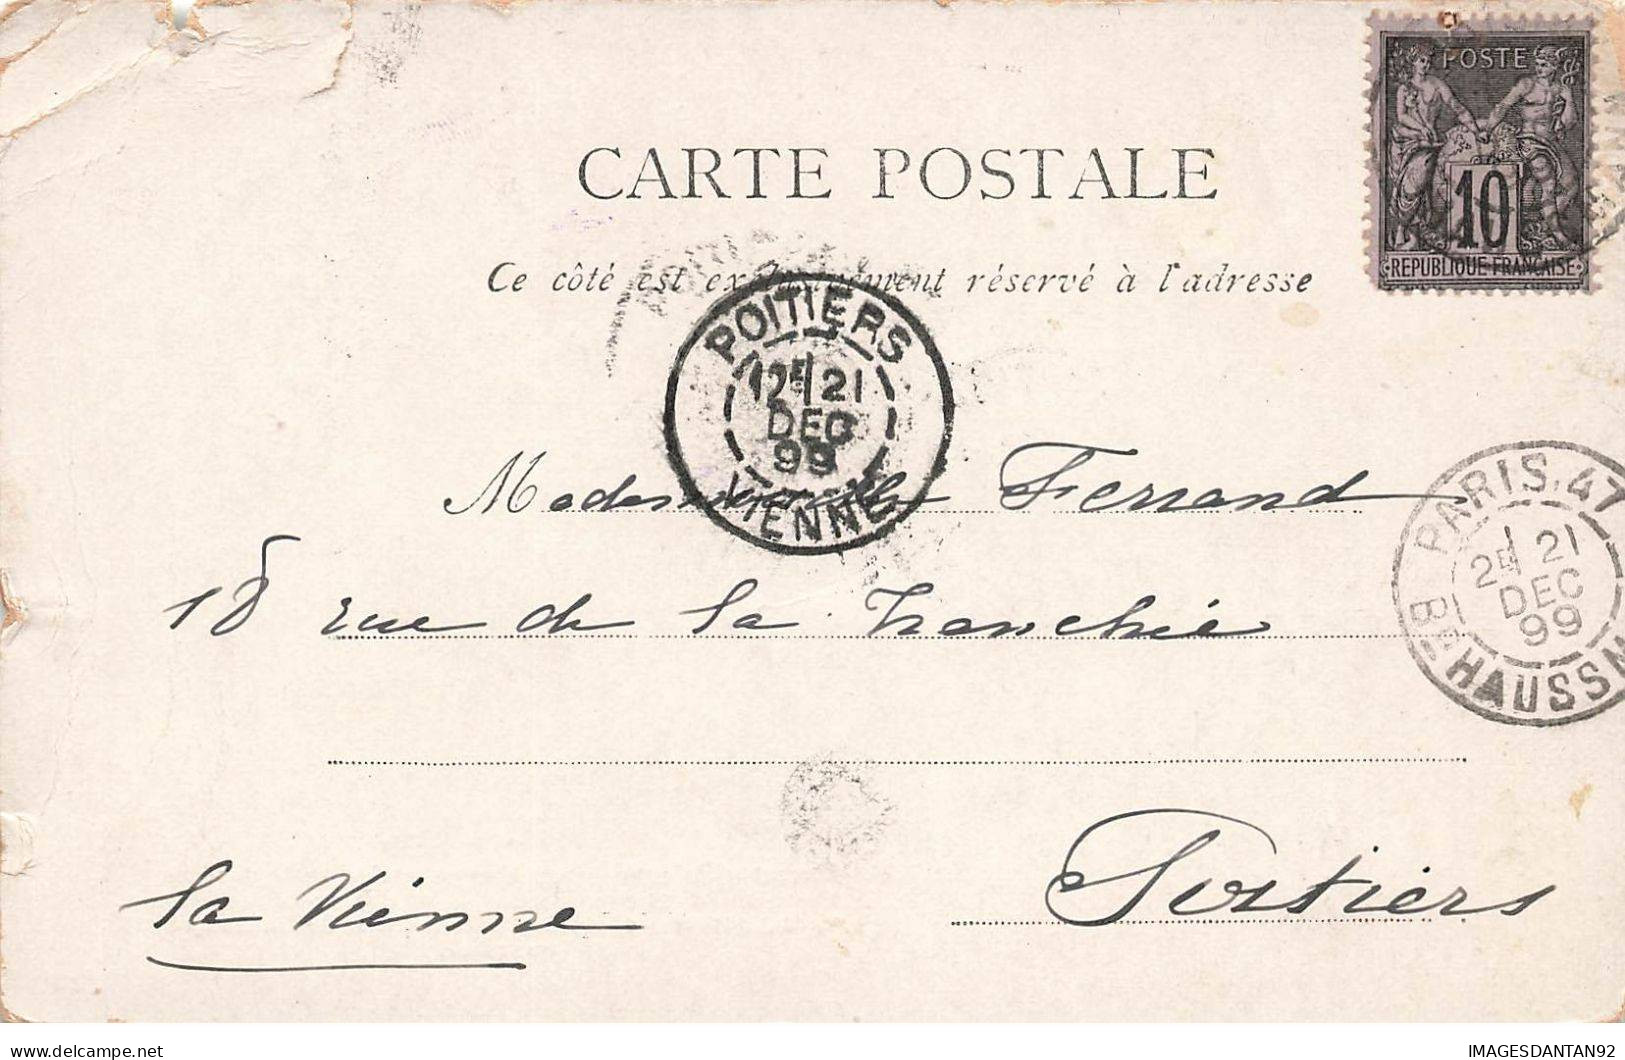 POSTE
10
REPUBLIQUE FRANÇAISE
CARTE POSTALE
Ce côté est exclusivement réservé à l'adresse
POITIERS
12E 21
DEC
99
VIENNE
Mademoiselle Ferrand
PARIS. 47
2E 21
DEC
99
Bd HAUSSM
18 rue de la Tranchée
Poitiers
la Vienne
IMAGESDANTAN92
delcampe.net